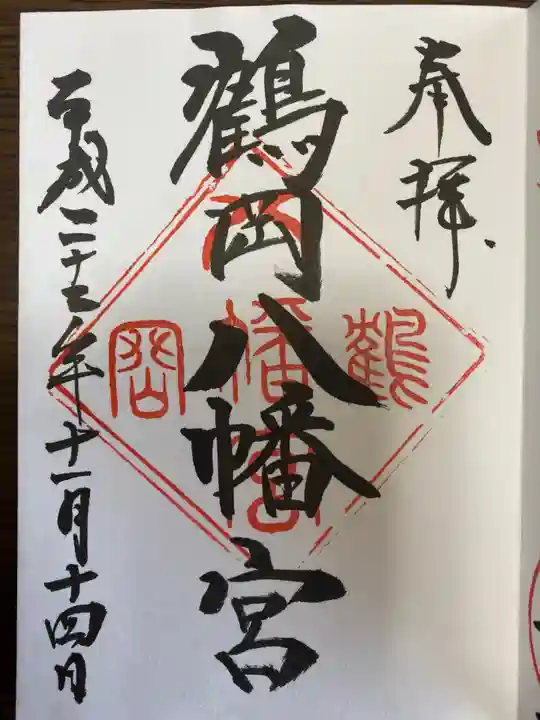 奉拝
鶴岡八幡宮
平成二十七年十一月十四日
鶴
八幡宮
岡